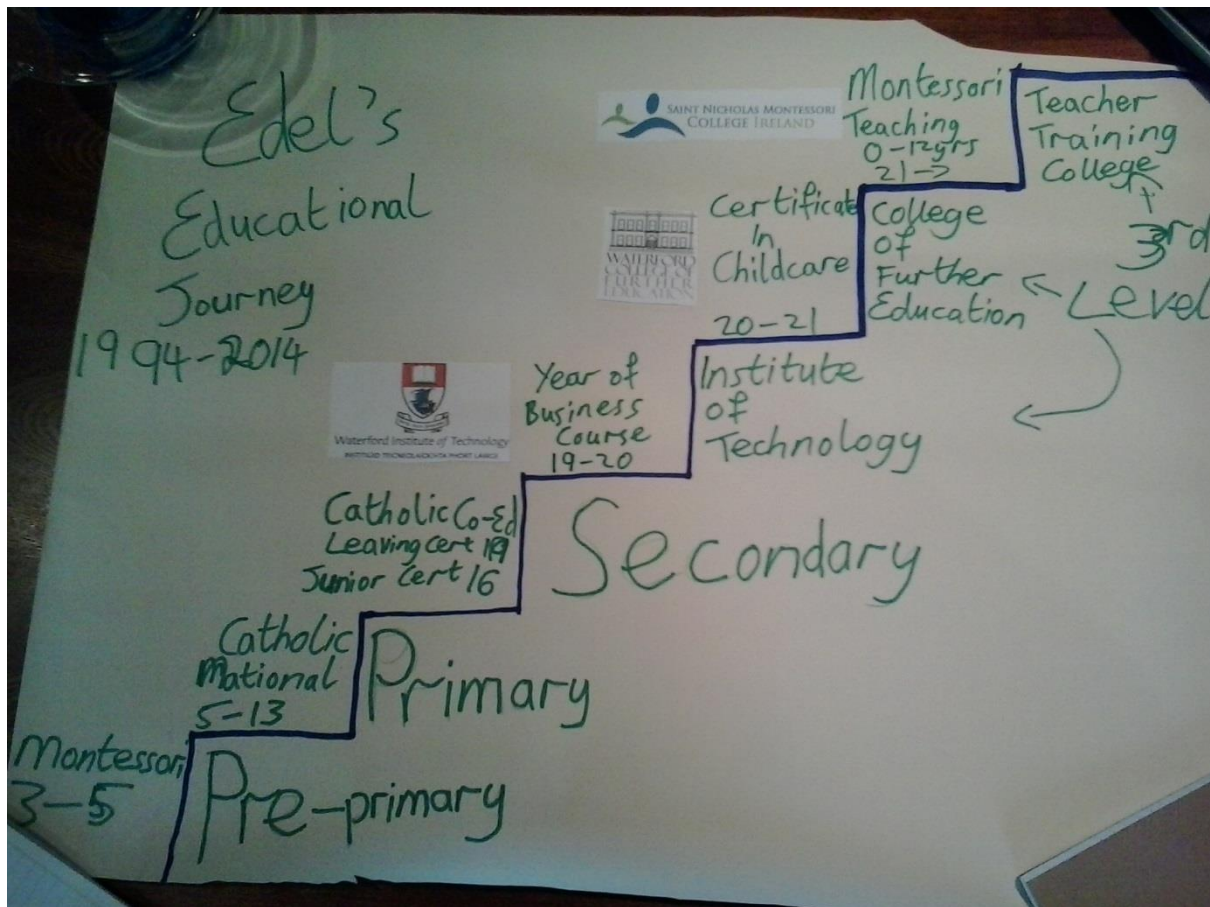 Edel's
Educational
Journey
1994-2014
SAINT NICHOLAS MONTESSORI
COLLEGE IRELAND
Montessori
Teaching
0-12yrs
21->
Teacher
Training
College
3rd
Level
WATERFORD
COLLEGE OF
FURTHER
EDUCATION
Certificate
In
Childcare
20-21
College
of
Further
Education
Waterford Institute of Technology
INSTITIÚID TEICNEOLAÍOCHTA PHORT LÁIRGE
Year of
Business
Course
19-20
Institute
of
Technology
Catholic Co-Ed
Leaving Cert 19
Junior Cert 16
Secondary
Catholic
National
5-13
Primary
Montessori
3-5
Pre-primary